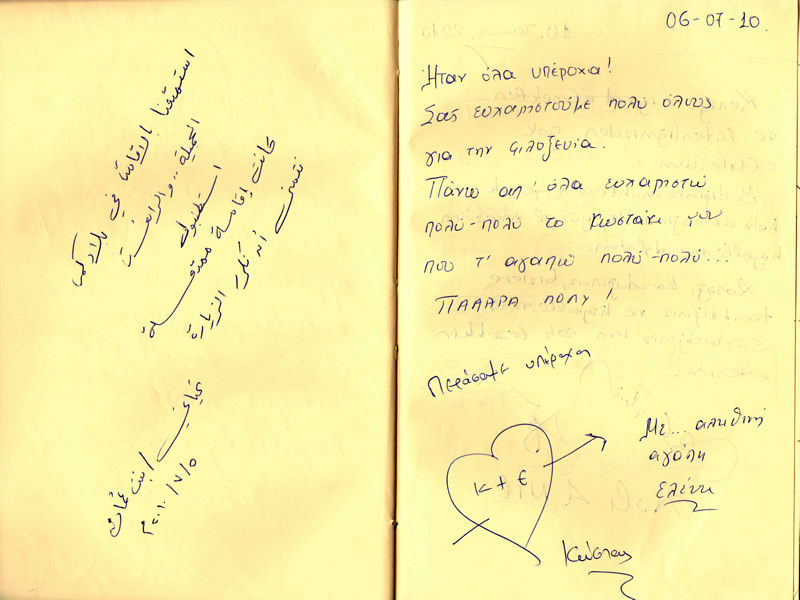 استمتعنا بالإقامة في بلادكم
الجميلة .. والرائعة
استطنبول
كانت إقامة ممتعة
نتمنى أن نكرر الزيارة
٢٠١٠/٧/٥م
06-07-10.
Ήταν όλα υπέροχα!
Σας ευχαριστούμε πολύ όλους
για την φιλοξενία.
Πάνω απ' όλα ευχαριστώ
πολύ-πολύ το Κωστάκι μου
που τ' αγαπώ πολύ-πολύ...
ΠΑΑΑΡΑ ΠΟΛΥ!
Περάσαμε υπέροχα
Με... αληθινή
αγάπη
Ελένη
Κ + Ε
Κώστας